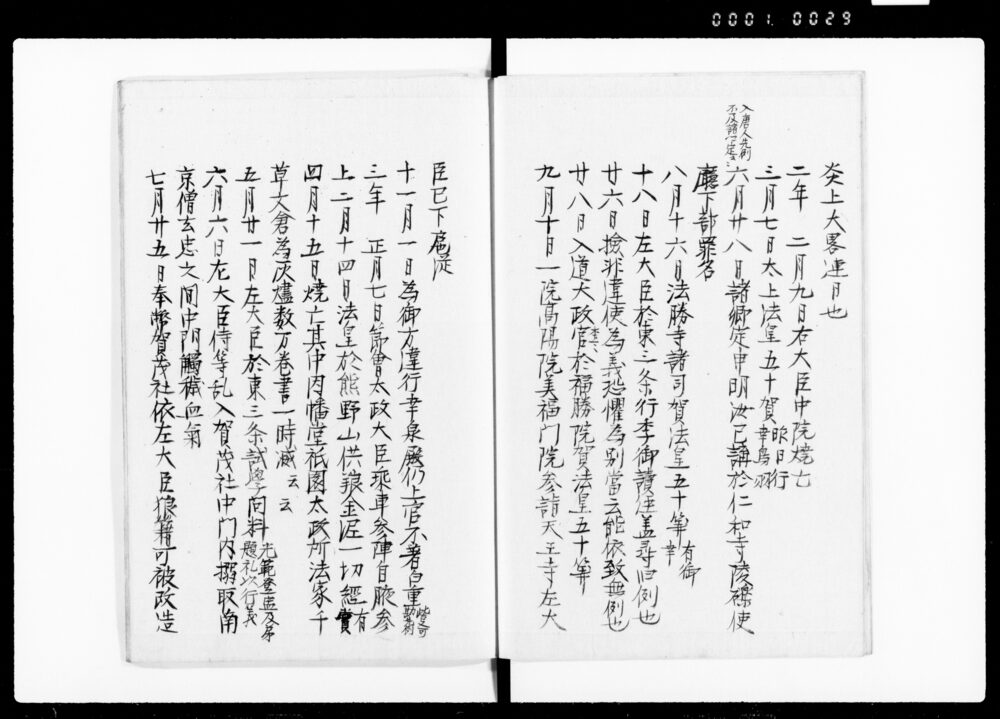 0001 0029
炎上大畧連月也
二年 二月九日右大臣中院焼亡
三月七日太上法皇五十賀 昨日行幸鳥羽
入唐人先例不及諸
六月廿八日諸卿定申明法已講於仁和寺陵礫使
廳下部罪名
八月十六日法勝寺諸司賀法皇五十算 有御幸
十八日左大臣於東三条行季御讀経盖尋旧例也
廿六日撿非違使為義恐懼為別當云能依致無例也
廿八日入道大政官於福勝院賀法皇五十算
九月十日一院高陽院美福門院参詣天王寺左大
臣已下扈従
十一月一日為御方違行幸泉殿仍上官不著白重
三年 正月七日節會太政大臣乘車参陣自腋参
上二月十四日法皇於熊野山供養金泥一切經 有賞
四月十五日焼亡其中因幡堂祇園大政所法家千
草文倉為灰燼数万卷書一時滅云云
五月廿一日左大臣於東三条試學問料
六月六日左大臣侍等乱入賀茂社中門内搦取南
京僧玄忠之間中門觸穢血氣
七月廿五日奉幣賀茂社依左大臣狼籍可被改造